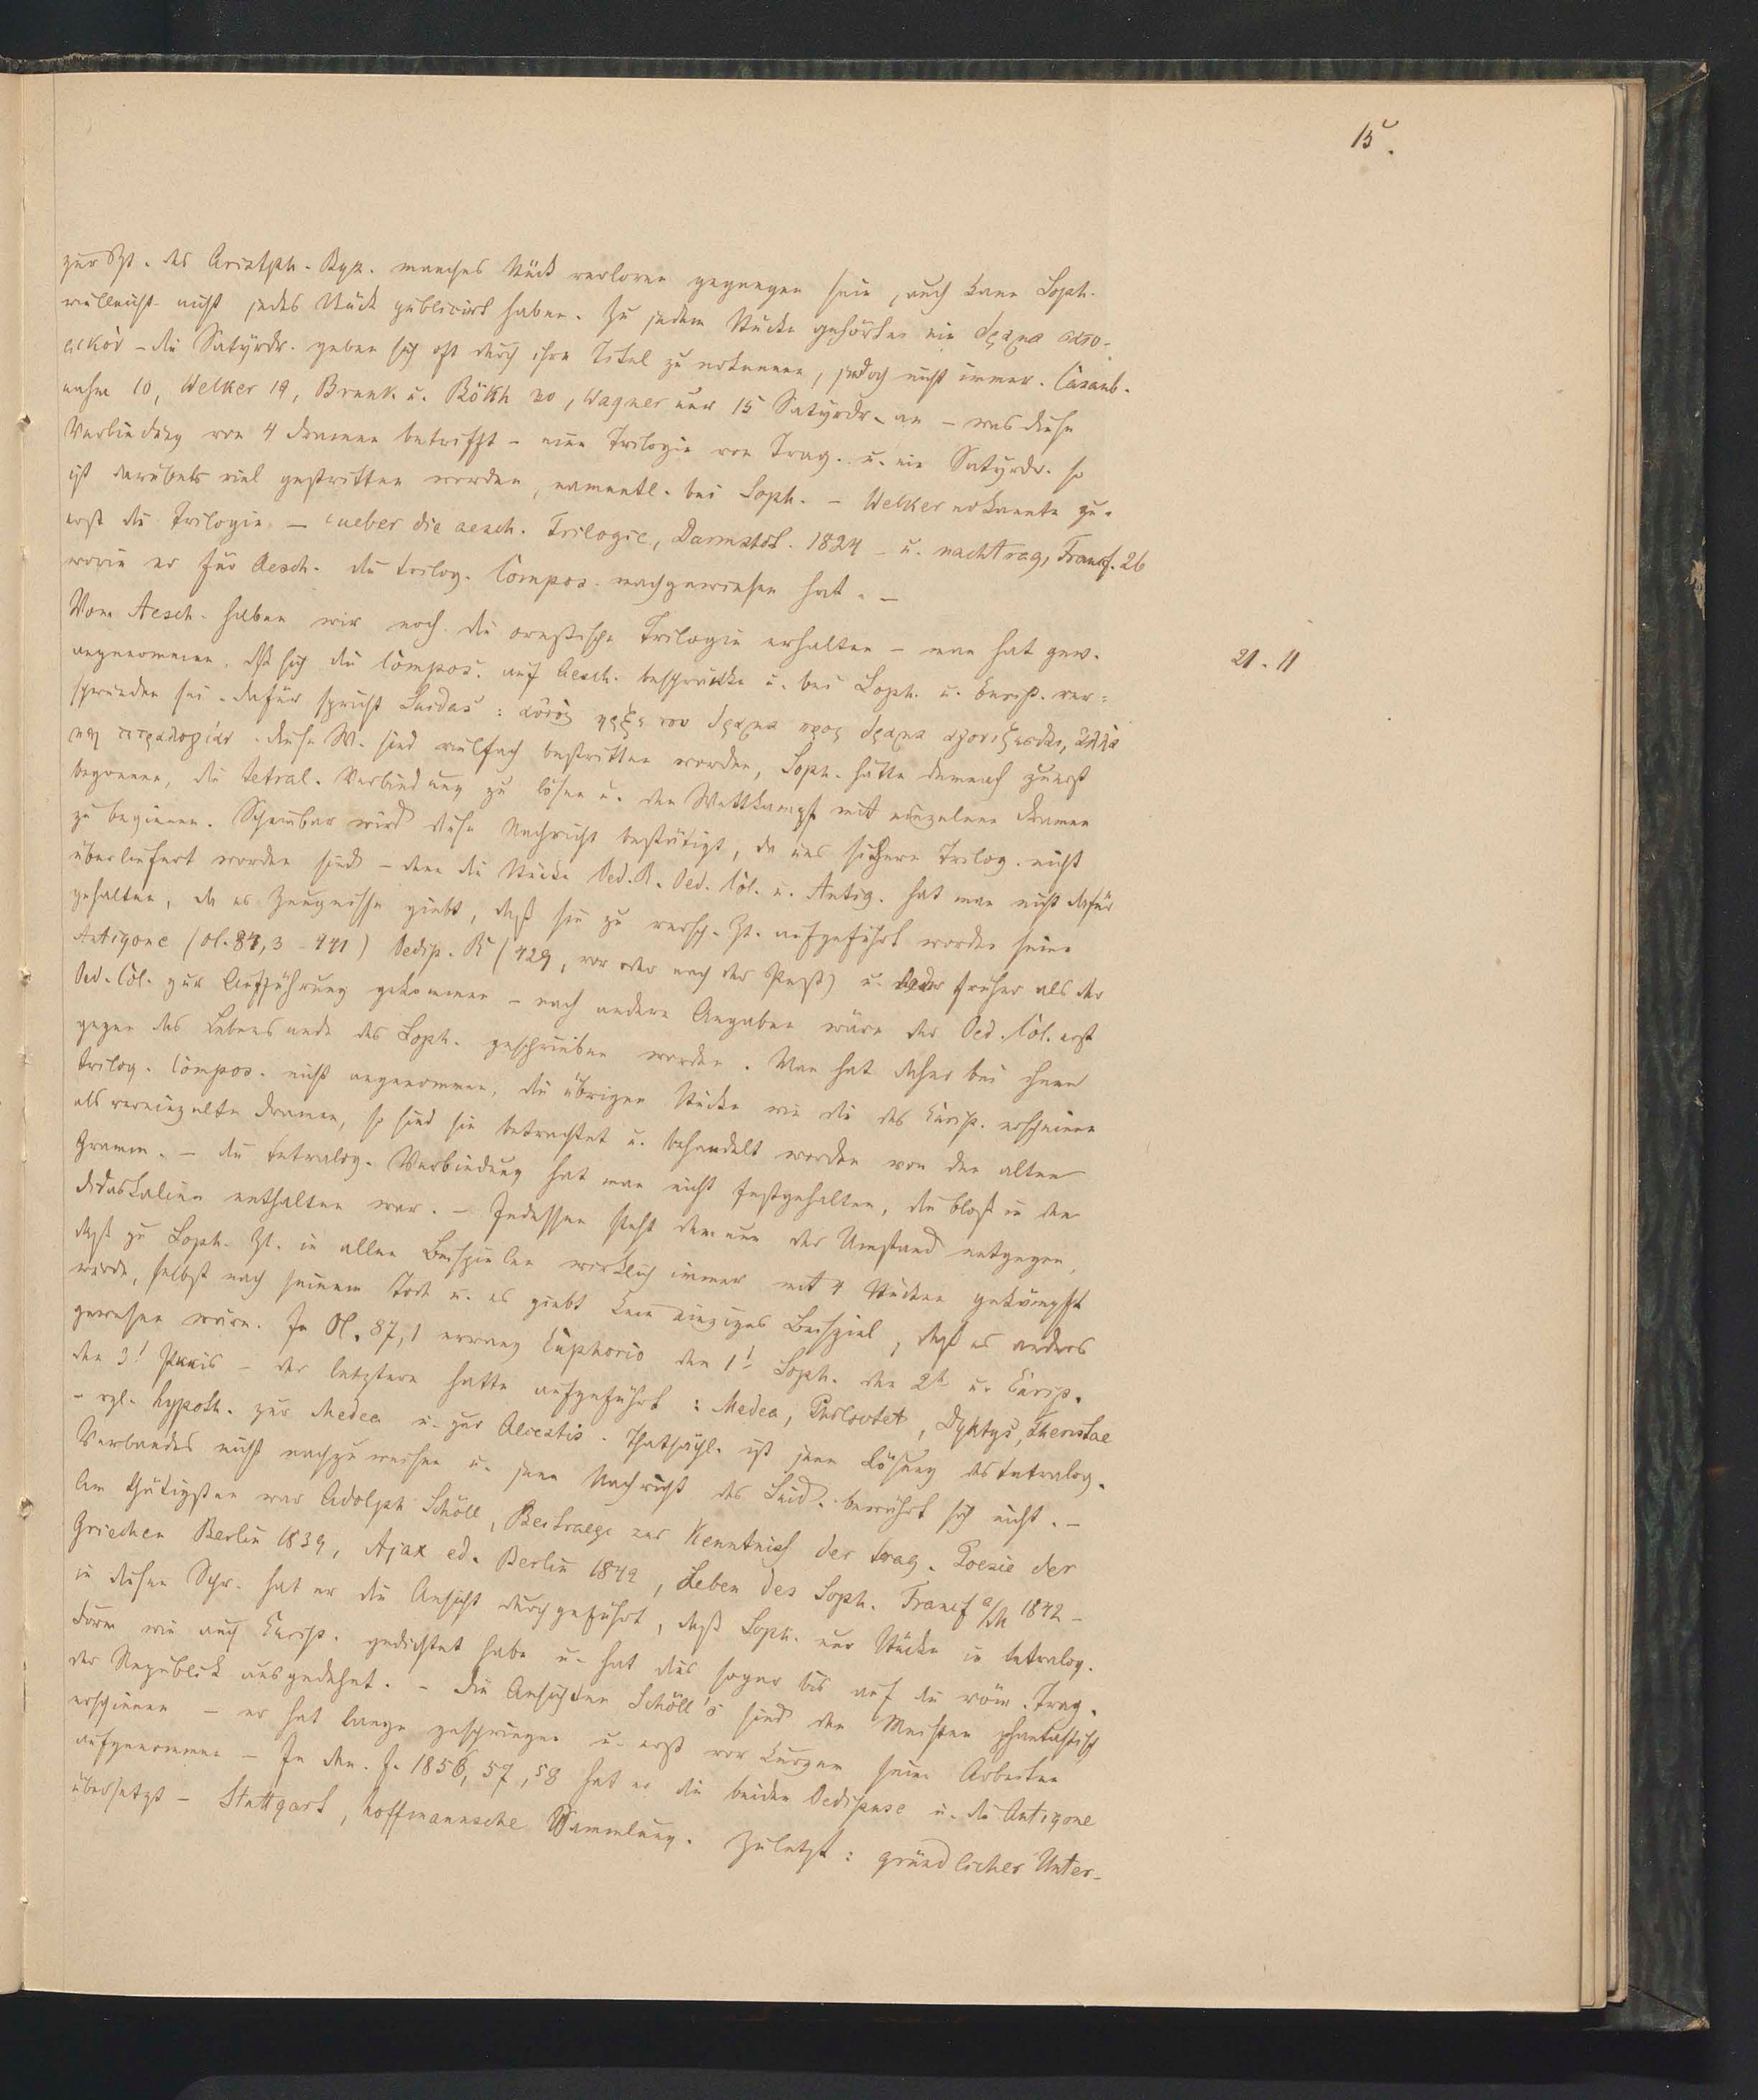 15.
zur Zt. des Aristph. Byz. manches Stück verloren gegangen sein, auch kann Soph.
vielleicht nicht jedes Stück publicirt haben. Zu jedem Stücke gehörte ein δραμα σατυ-
ρικὸν – die Satyrdr. geben sich oft durch ihre Titel zu erkennen, jedoch nicht immer. Casaub.
nahm 10, Welker 19, Brunk u. Bökh 20, Wagner nur 15 Satyrdr. an – was diese
Verbindung von 4 Dramen betrifft – eine Trilogie von Trag. u. ein Satyrdr. so
ist darüber viel gestritten worden, namentl. bei Soph. – Welker erkannte zu-
erst die Trilogie – ueber die aesch. Trilogie, Darmstdt. 1824 – u. nachtrag, Francf. 26
worin er für Aesch. die trilog. Compos. nachgewiesen hat. –
Von Aesch. haben wir noch die orestische Trilogie erhalten – man hat gew.
21. 11
angenommen, dß sich die Compos. auf Aesch. beschränkte u. bei Soph. u. Eurip. ver-
schwunden sei. dafür spricht Suidas: αὐτὸς ηρξε του δραμα προς δραμα αγονιζεσθαι, ἀλλὰ
μη τετραλογίαν. diese W. sind vielfach bestritten worden, Soph. hätte demnach zuerst
begonnen, die tetral. Verbindung zu lösen u. den Wettkampf mit einzelnen Dramen
zu beginnen. Scheinbar wird diese Nachricht bestätigt, da uns sichere Trilog. nicht
überliefert worden sind – denn die Stücke Oed. R. Oed. Col. u. Antig. hat man nicht dafür
gehalten, da es Zeugnisse giebt, daß sie zu versch. Zt. aufgeführt worden seien
Antigone (Ol. 84,3 – 441) Oedip. R (429, vor oder nach der Pest) u. früher als der
Oed. Col. zur Aufführung gekommen – nach andern Angaben wäre der Oed. Col. erst
gegen das Lebensende des Soph. geschrieben worden. Man hat daher bei ihnen
trilog. Compos. nicht angenommen, die übrigen Stücke wie die des Eurip. erscheinen
als vereinzelte Dramen, so sind sie betrachtet u. behandelt worden von den alten
Gramm. – die tetralog. Verbindung hat man nicht festgehalten, die bloß in den
didaskalien enthalten war. – Indessen steht dem nun der Umstand entgegen,
daß zu Soph. Zt. in allen Beispielen wirklich immer mit 4 Stücken gekämpft
wurde, selbst nach seinem Tode u. es giebt kein einziges Beispiel, daß es anders
gewesen wäre. In Ol. 87,1 errang Euphorio den 1! Soph. den 2t u. Eurip.
den 3! Preis – der letztere hatte aufgeführt: Medea, Philoctet, Dyktys, theristae
– vgl. hypoth. zur Medea u. zur Alcestis. Thatsächl. ist jene Lösung des tetralog.
Verbandes nicht nachzuweisen u. jene Nachricht des Suid. bewährt sich nicht. –
Am thätigsten war Adolph Schöll, Beitraege zur Kenntniß der trag. Poesie der
Griechen Berlin 1839, Ajax ed. Berlin 1842, Leben des Soph. Francf a/M 1842 –
in diesen Schr. hat er die Ansicht durchgeführt, daß Soph. nur Stücke in tetralog.
Form wie auch Eurip. gedichtet habe u. hat dies sogar bis auf die röm. Trag.
der Republik ausgedehnt. – die Ansichten Schöll's sind den Meisten phantastisch
erschienen – er hat lange geschwiegen u. erst vor Kurzem seine Arbeiten
aufgenommen – In den J. 1856, 57, 58 hat er die beiden Oedipuse u. die Antigone
übersetzt – Stuttgart, hoffmannsche Sammlung. Zuletzt: gründlicher Unter-